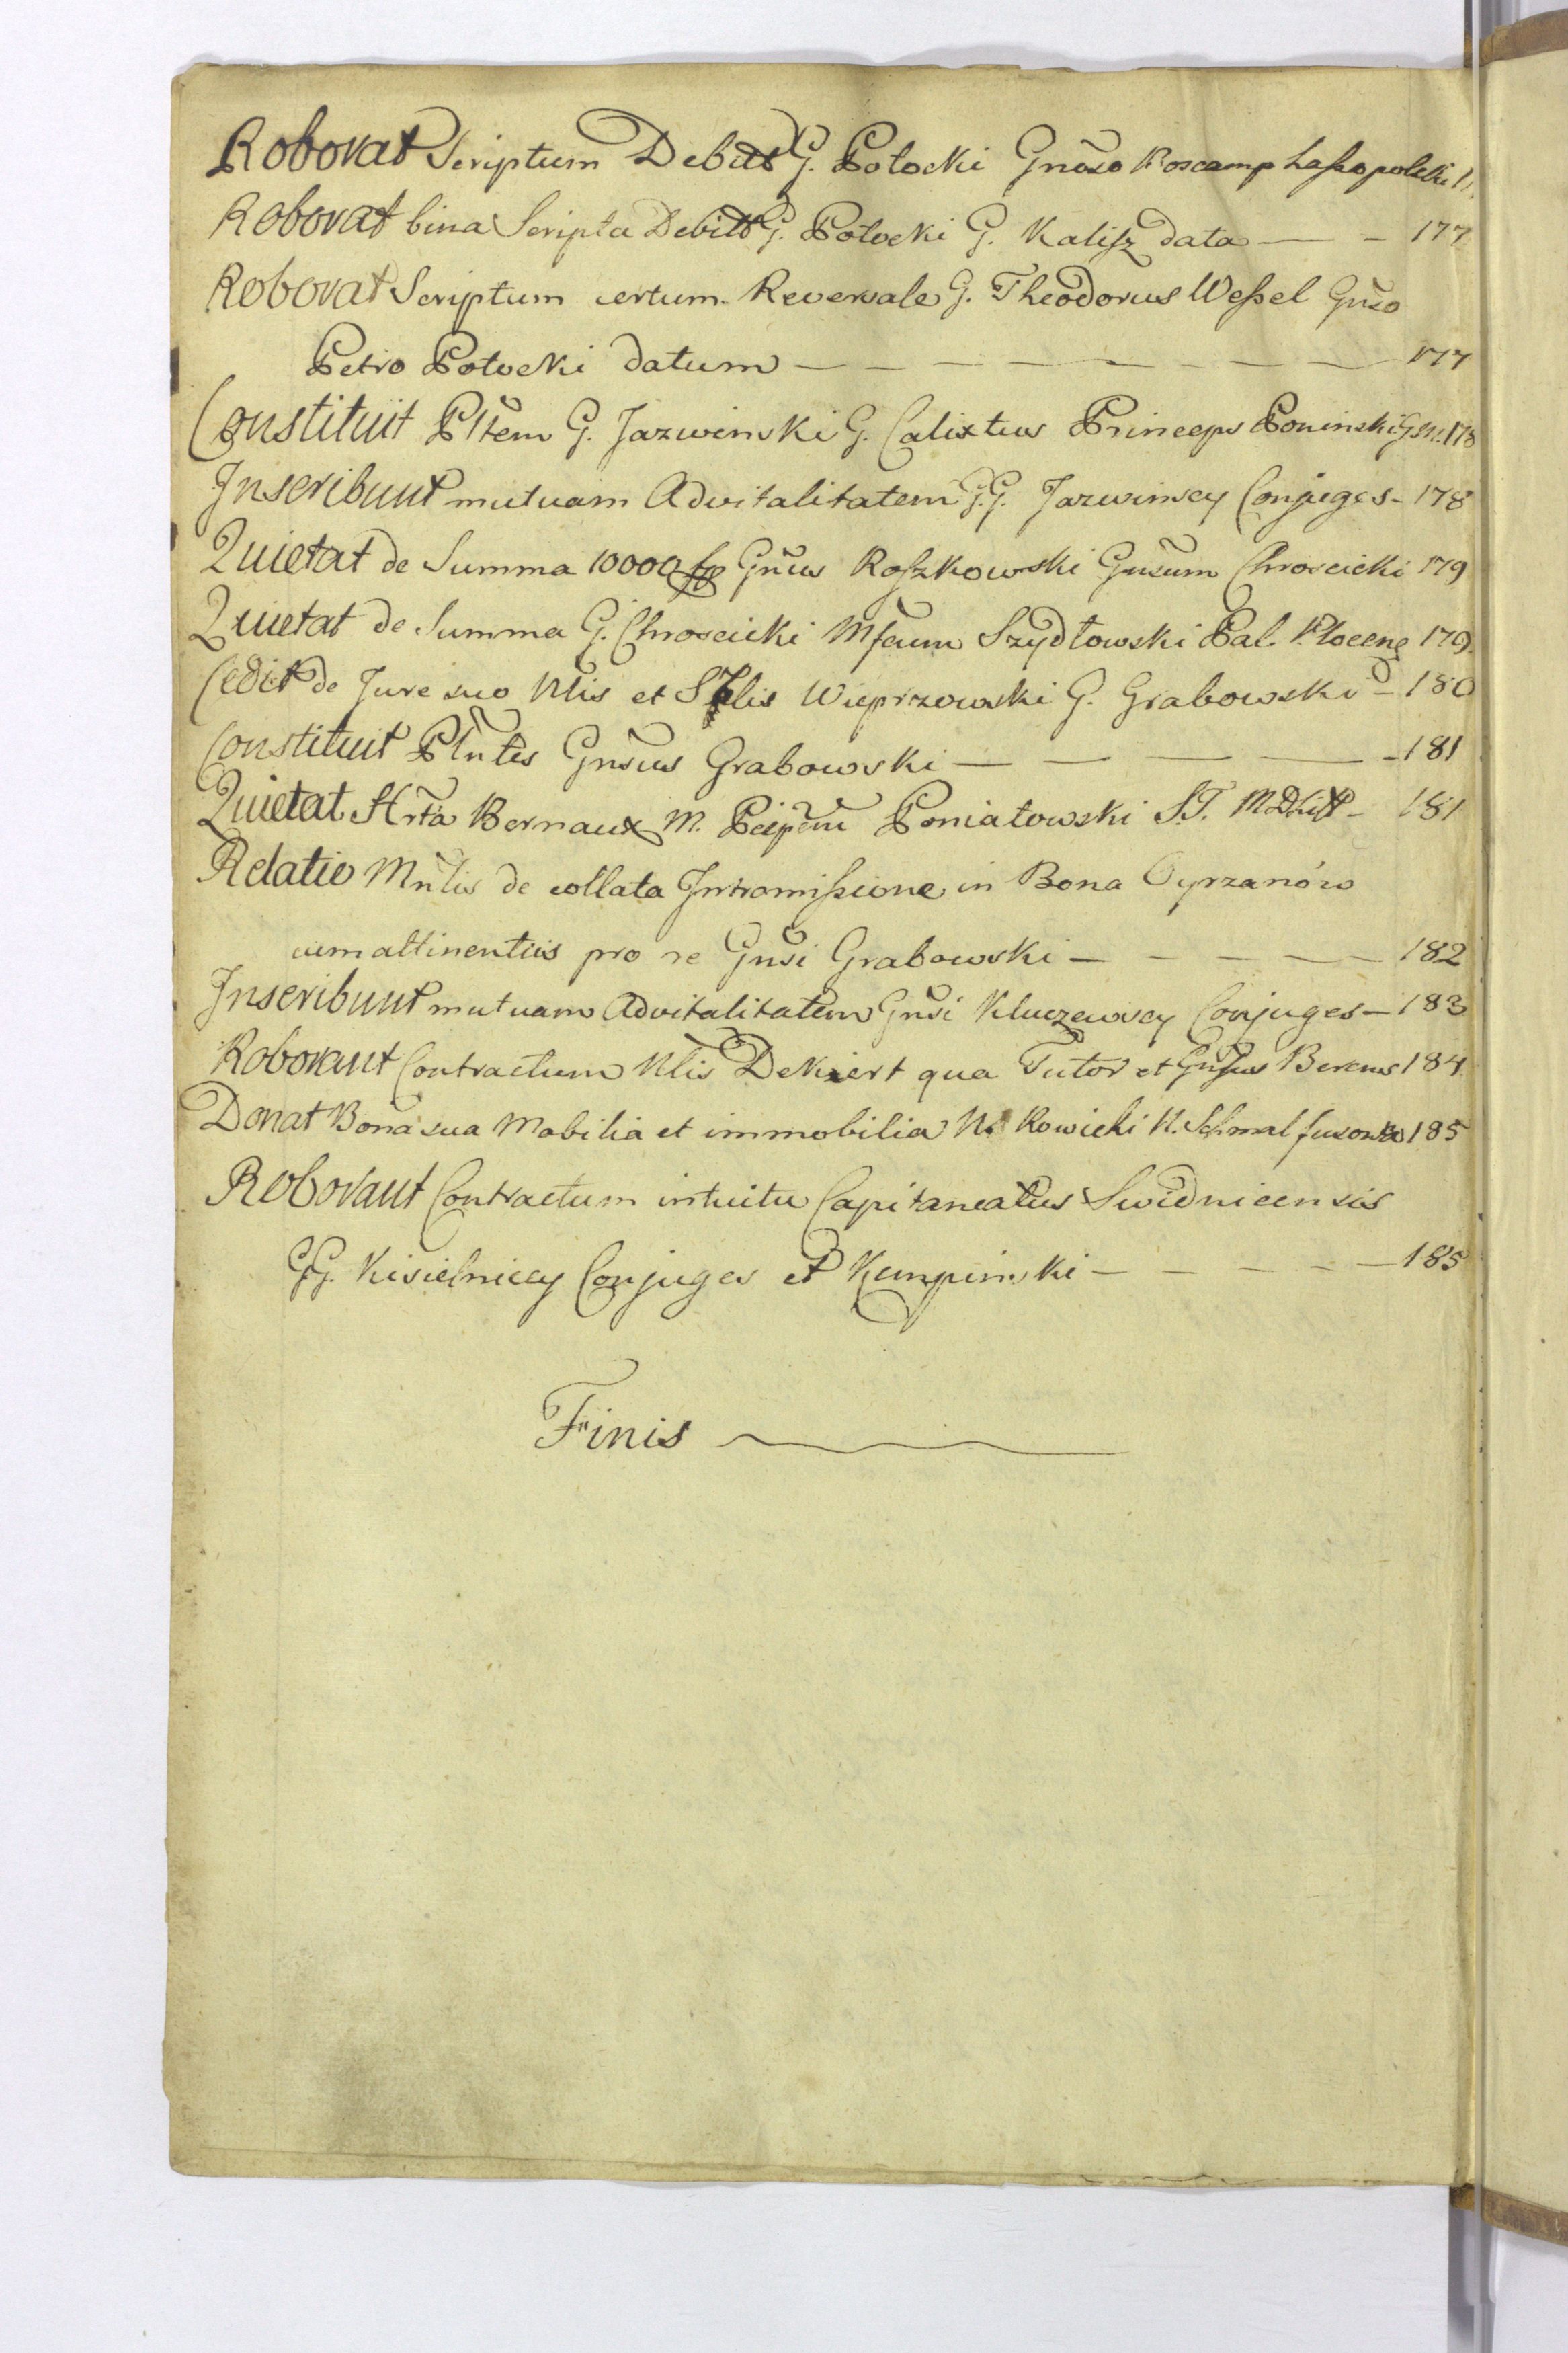 Roborat Scriptum Debiti G. Potocki Gnoso Koscamp Lassopolski
Roborat bina Scripta Debiti G. Potocki G. Kalisz data — – 177
Roborat Scriptum certum Reversale G. Theodorus Wessel Gnso
Petro Potocki datum — — — — — — — 177
Constituit Pltem G. Jazwinski G. Calixtus Princeps Poninski G.M. 178
Inscribunt mutuam Advitalitatem G.G. Jazwinscy Conjuges – 178
Quietat de Summa 10000 Gnsus Roszkowski Gnsum Chroscicki 179
Quietat de Summa G. Chroscicki Mfcum Szydłowski Pal. Plocens 179
Cedit de Jure suo Nlis et Wieprzowski G. Grabowski – 180
Constituit Plntes Gnsus Grabowski — — — — – 181
Quietat Hrta Bernaux M. Pcipem Poniatowski S.T. – 181
Relatio Mnlis de collata Intromissione in Bona Oyrzanów
cum attinentiis pro re Gnsi Grabowski — — — — — 182
Inscribunt mutuam Advitalitatem Gnsi Kluczewscy Conjuges – 183
Roborant Contractum Nlis Dekiert qua Tutor et Gnsus 184
Donat Bona sua Mobilia et immobilia N. Rowicki N. 185
Roborant Contractum intuitu Capitaneatus Swidnicensis
GG. Kisielniccy Conjuges et Kempinski — — — — — 185
Finis